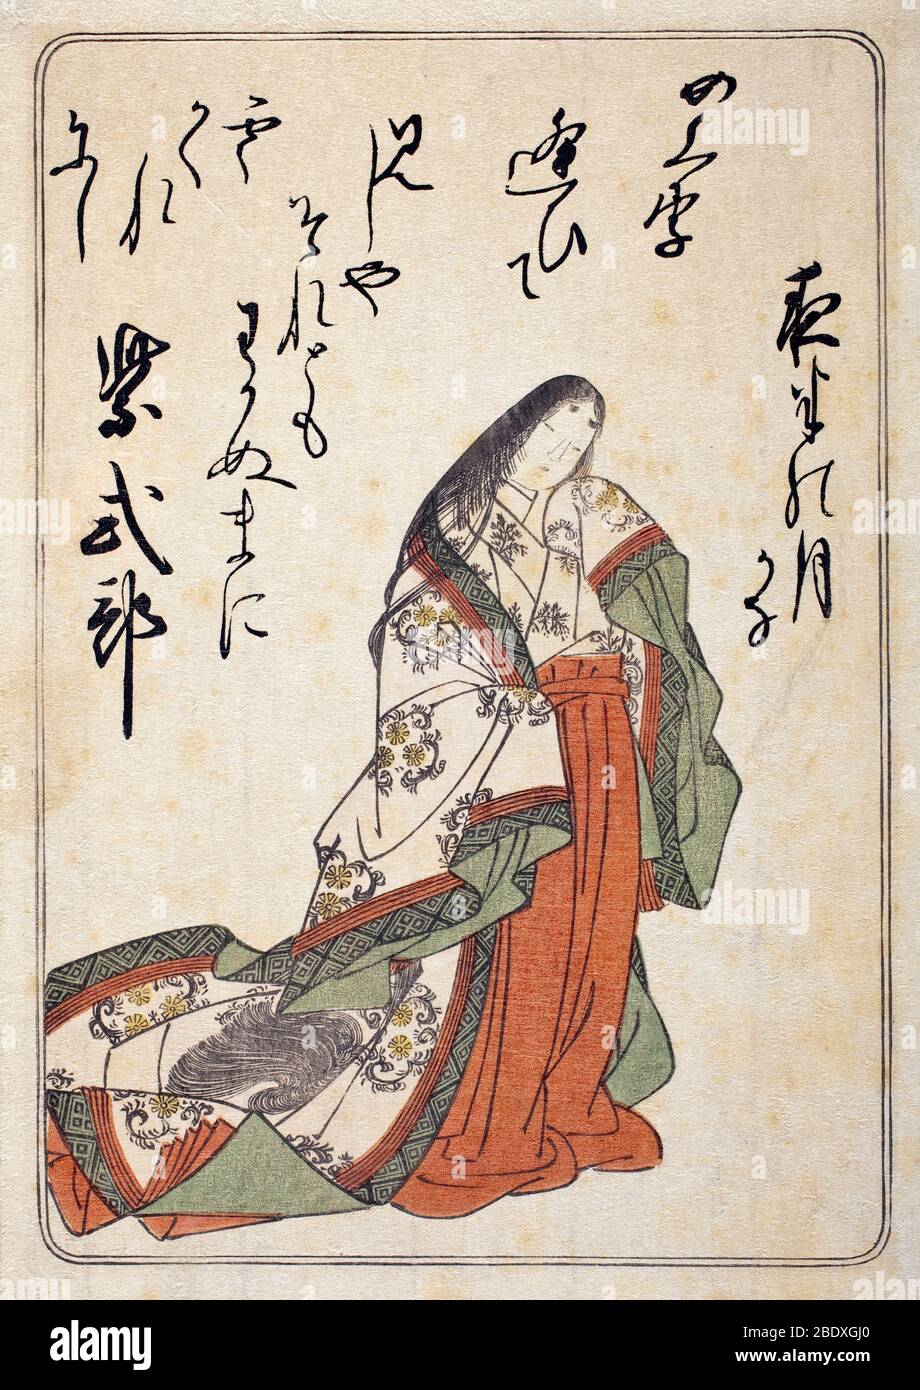 めくり
逢ひて
見しや
それとも
わかぬまに
雲
かく
れ
にし
夜半の月
かな
紫式部
alamy
Image ID: 2BDXGJ0
www.alamy.com